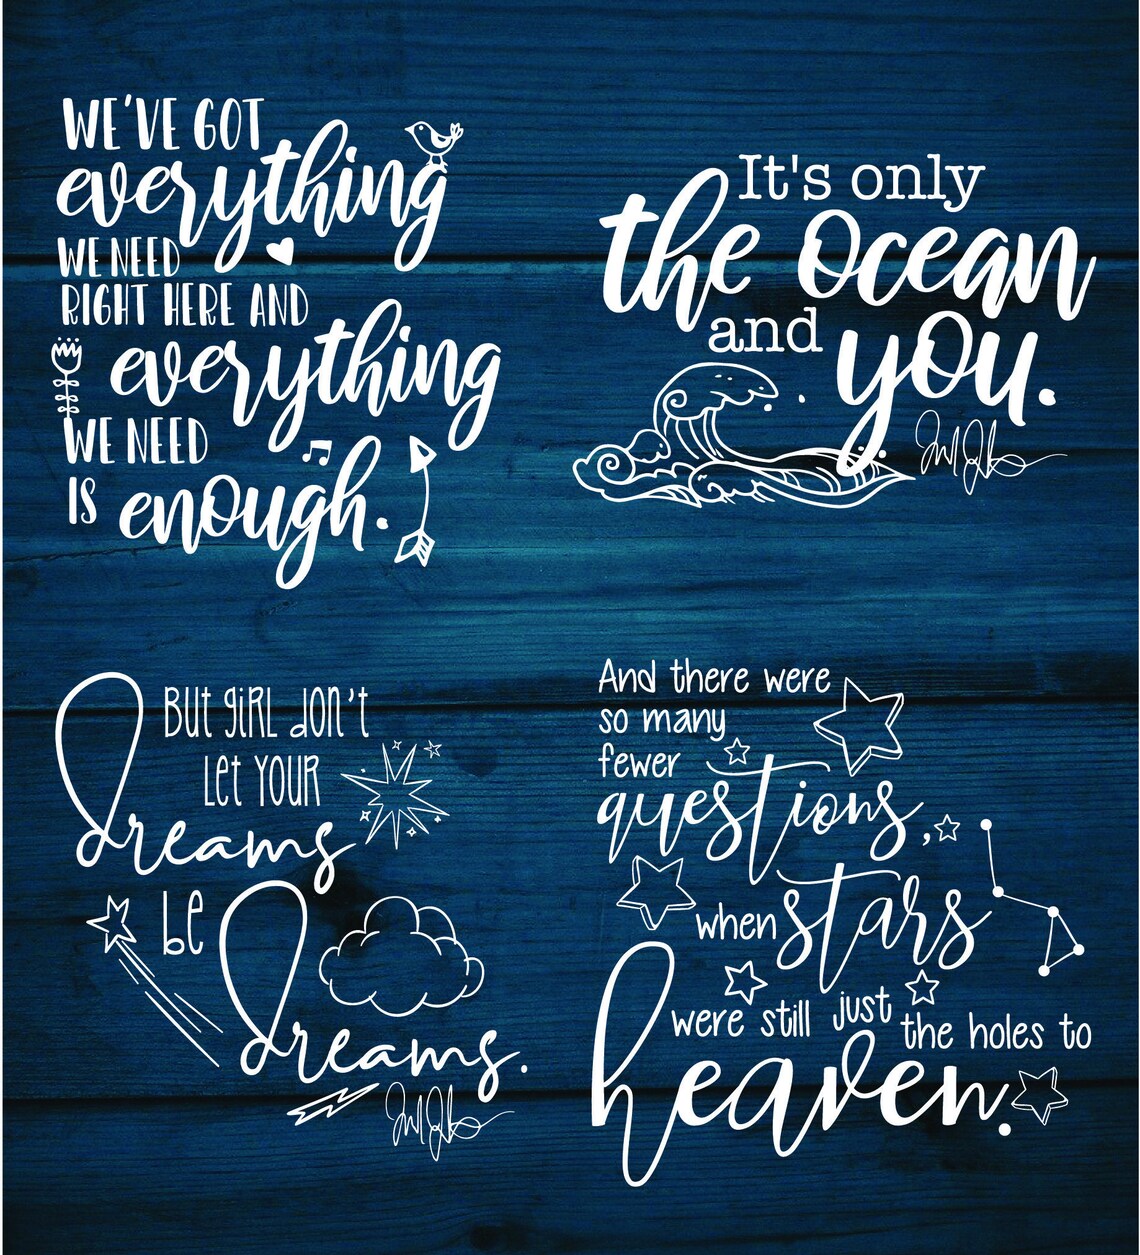 WE'VE GOT
everything
WE NEED
RIGHT HERE AND
everything
WE NEED
IS enough.
It's only
the ocean
and
you.
But giRL don't
Let YOUR
dreams
be
dreams.
And there were
so many
fewer
questions,
when stars
were still just the holes to
heaven.